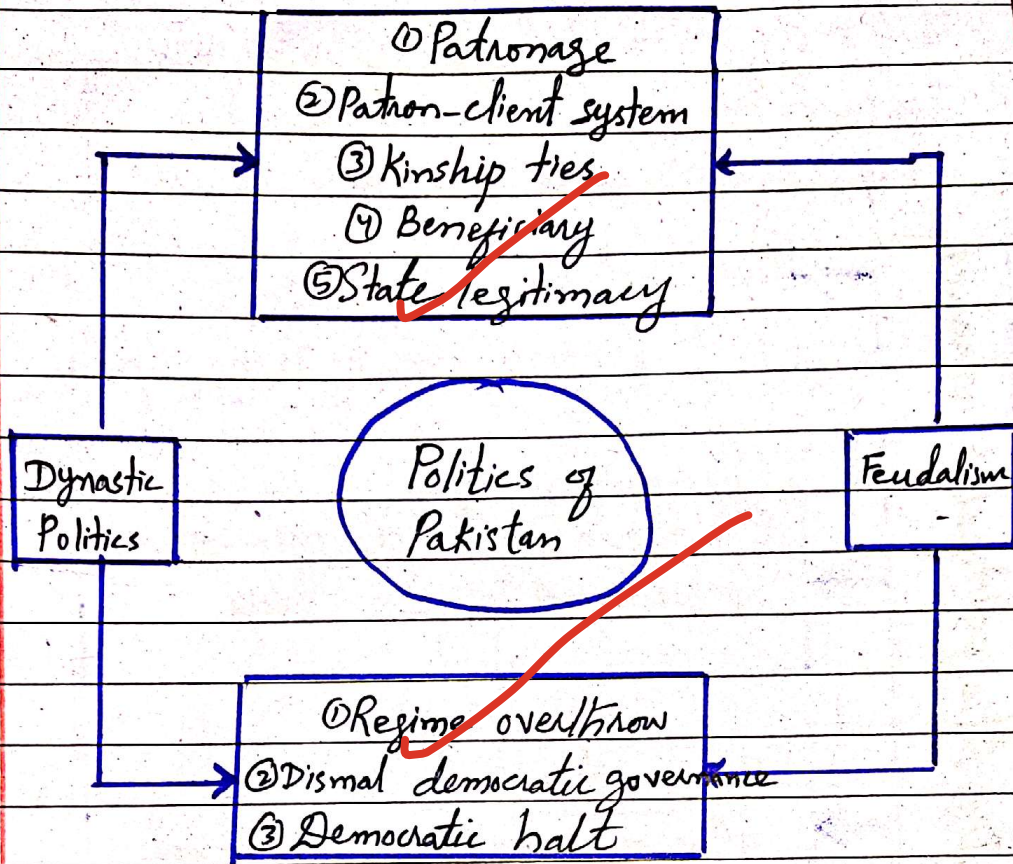 ① Patronage
② Patron-client system
③ Kinship ties
④ Beneficiary
⑤ State legitimacy
Dynastic
Politics
Politics of
Pakistan
Feudalism
-
① Regime overthrow
② Dismal democratic governance
③ Democratic halt